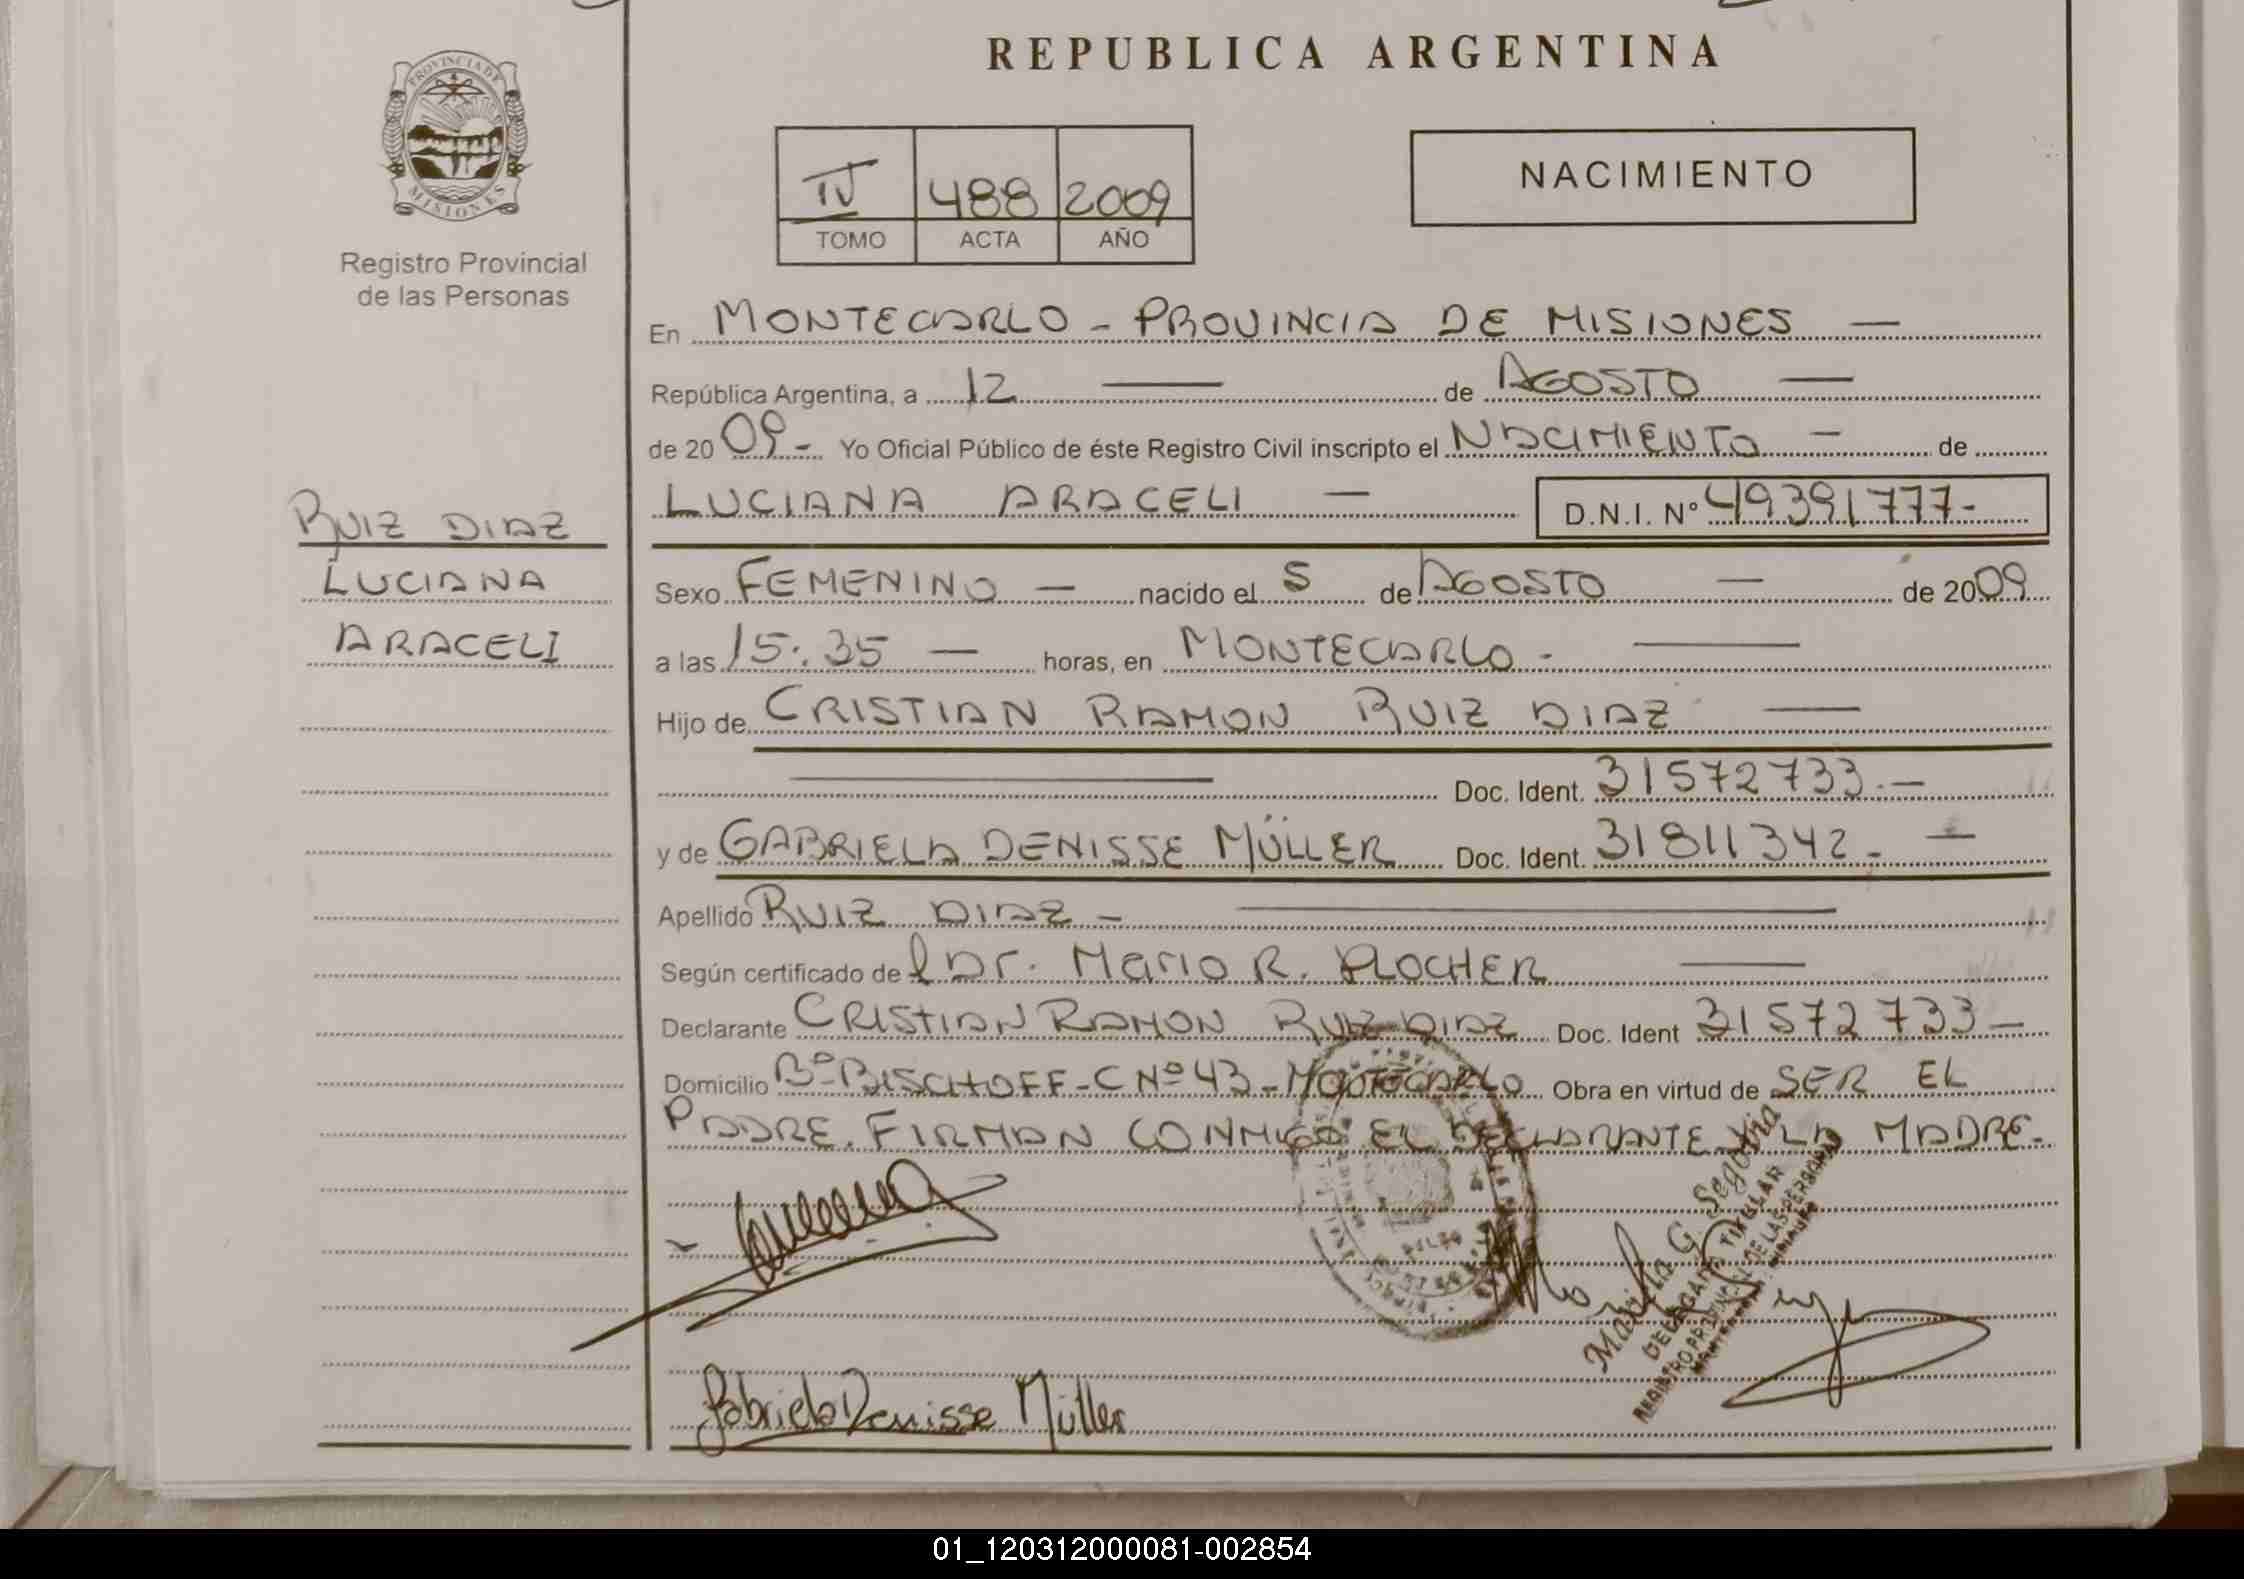 REPUBLICA ARGENTINA
PROVINCIA DE
MISIONES
Registro Provincial
de las Personas
IV 488 2009
TOMO ACTA AÑO
NACIMIENTO
En MONTECARLO - PROVINCIA DE MISIONES —
República Argentina, a 12 — de AGOSTO —
de 2009.- Yo Oficial Público de éste Registro Civil inscripto el NACIMIENTO — de
LUCIANA ARACELI — D.N.I. N° 49391777-
RUIZ DIAZ
LUCIANA
ARACELI
Sexo FEMENINO — nacido el 5 de AGOSTO — de 2009
a las 15:35 — horas, en MONTECARLO - —
Hijo de CRISTIAN RAMON RUIZ DIAZ —
— Doc. Ident. 31572733.—
y de GABRIELA DENISSE MÜLLER Doc. Ident. 31811342. —
Apellido RUIZ DIAZ - —
Según certificado del Dr. Mario R. PLOCHER —
Declarante CRISTIAN RAMON RUIZ DIAZ Doc. Ident 31572733—
Domicilio Bº BISCHOFF - C Nº 43 - MONTECARLO Obra en virtud de SER EL
PADRE. FIRMAN CONMIGO EL DECLARANTE Y LA MADRE.
Gabriela Denisse Müller
G. Segovia
DELEGADA TITULAR
REGISTRO PROVINCIAL DE LAS PERSONAS
01_120312000081-002854